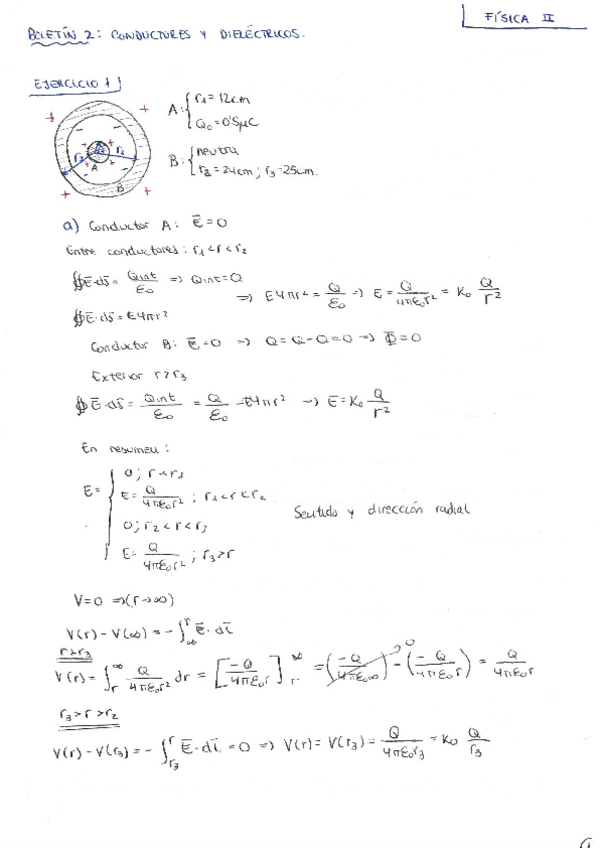 FÍSICA II
BOLETÍN 2: CONDUCTORES Y DIELÉCTRICOS.
EJERCICIO 1
A: { r₁ = 12cm
Q₀ = 0'5μC
B: { neutra
r₂ = 24cm ; r₃ = 25cm.
r₂ A r₂
A
B
a) Conductor A: Ē = 0
Entre conductores: r₁ < r < r₂
∯ Ē·ds̄ = Qint/ε₀ => Qint = Q
=> E4πr² = Q/ε₀ => E = Q/4πε₀r² = K₀ Q/r²
∯ Ē·ds̄ = E4πr²
Conductor B: Ē = 0 => Q = Q - Q = 0 => Φ = 0
Exterior r > r₃
∯ Ē·ds̄ = Qint/ε₀ = Q/ε₀ = E4πr² => Ē = K₀ Q/r²
En resumen:
E = { 0 ; r < r₁
E = Q/4πε₀r² ; r₁ < r < r₂
Sentido y dirección radial
0 ; r₂ < r < r₃
E = Q/4πε₀r² ; r₃ > r
V = 0 => (r → ∞)
V(r) - V(∞) = - ∫∞^r Ē·dl̄
r > r₃
V(r) = ∫r^∞ Q/4πε₀r² dr = [-Q/4πε₀r]r^∞ = (-Q/4πε₀∞)→0 - (-Q/4πε₀r) = Q/4πε₀r
r₃ > r > r₂
V(r) - V(r₃) = - ∫r₃^r Ē·dl̄ = 0 => V(r) = V(r₃) = Q/4πε₀r₃ = K₀ Q/r₃